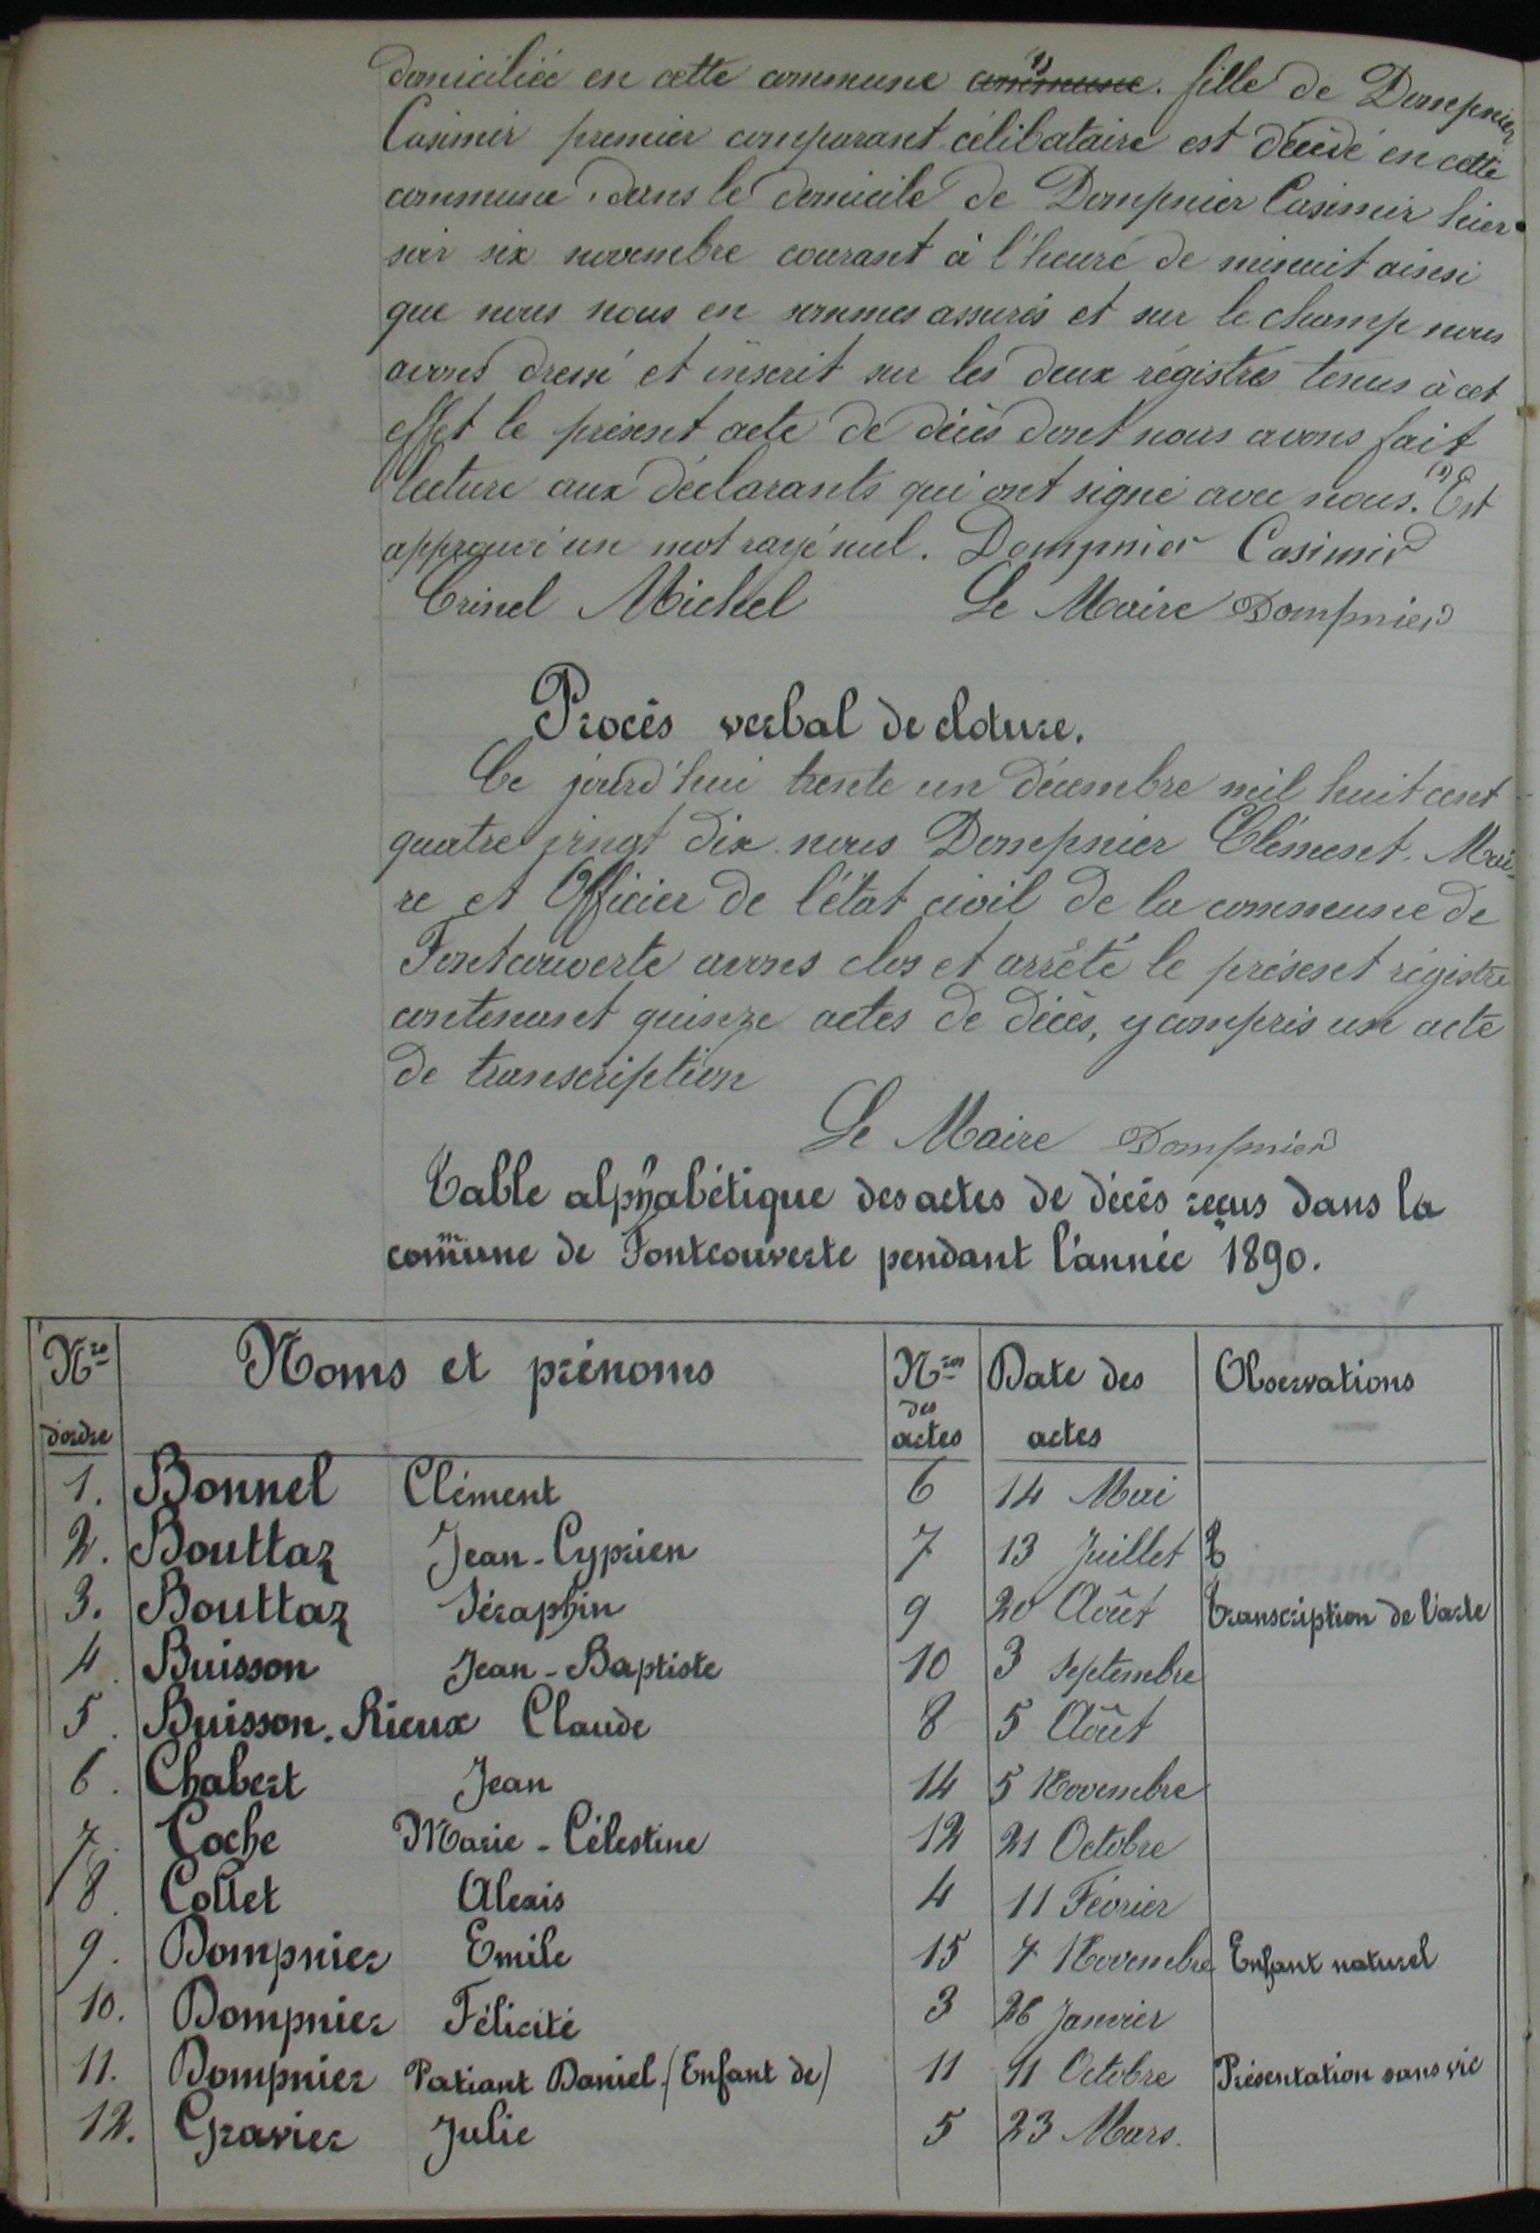 domiciliée en cette commune (1) commune. fille de Dompnier
Casimir premier comparant célibataire est décédé en cette
commune, dans le domicile de Dompnier Casimir hier
soir six novembre courant à l'heure de minuit ainsi
que nous nous en sommes assurés et sur le champ nous
avons dressé et inscrit sur les deux régistres tenus à cet
effet le présent acte de décès dont nous avons fait
lecture aux déclarants qui ont signé avec nous. (1) Est
approuvé un mot rayé nul. Dompnier Casimir
Crinel Michel Le Maire Dompnier
Procès verbal de cloture.
Ce jourd'hui trente un décembre mil huit cent
quatre vingt dix nous Dompnier Clément. Mai-
re et Officier de l'état civil de la commune de
Fontcouverte avons clos et arrêté le présent régistre
contenant quinze actes de décès, y compris un acte
de transcription
Le Maire Dompnier
Table alphabétique des actes de décès reçus dans la
comune de Fontcouverte pendant l'année 1890.
Nro d'ordre Noms et prénoms Nros des actes Date des actes Observations
1. Bonnel Clément 6 14 Mai
2. Bouttaz Jean-Cyprien 7 13 Juillet
3. Bouttaz Séraphin 9 20 Août Transcription de l'acte
4. Buisson Jean-Baptiste 10 3 Septembre
5. Buisson-Rieux Claude 8 5 Août
6. Chabert Jean 14 5 Novembre
7. Coche Marie-Célestine 12 21 Octobre
8. Collet Alexis 4 11 Février
9. Dompnier Emile 15 7 Novembre Enfant naturel
10. Dompnier Félicité 3 26 Janvier
11. Dompnier Patiant Daniel. (Enfant de) 11 11 Octobre Présentation sans vie
12. Gravier Julie 5 23 Mars.